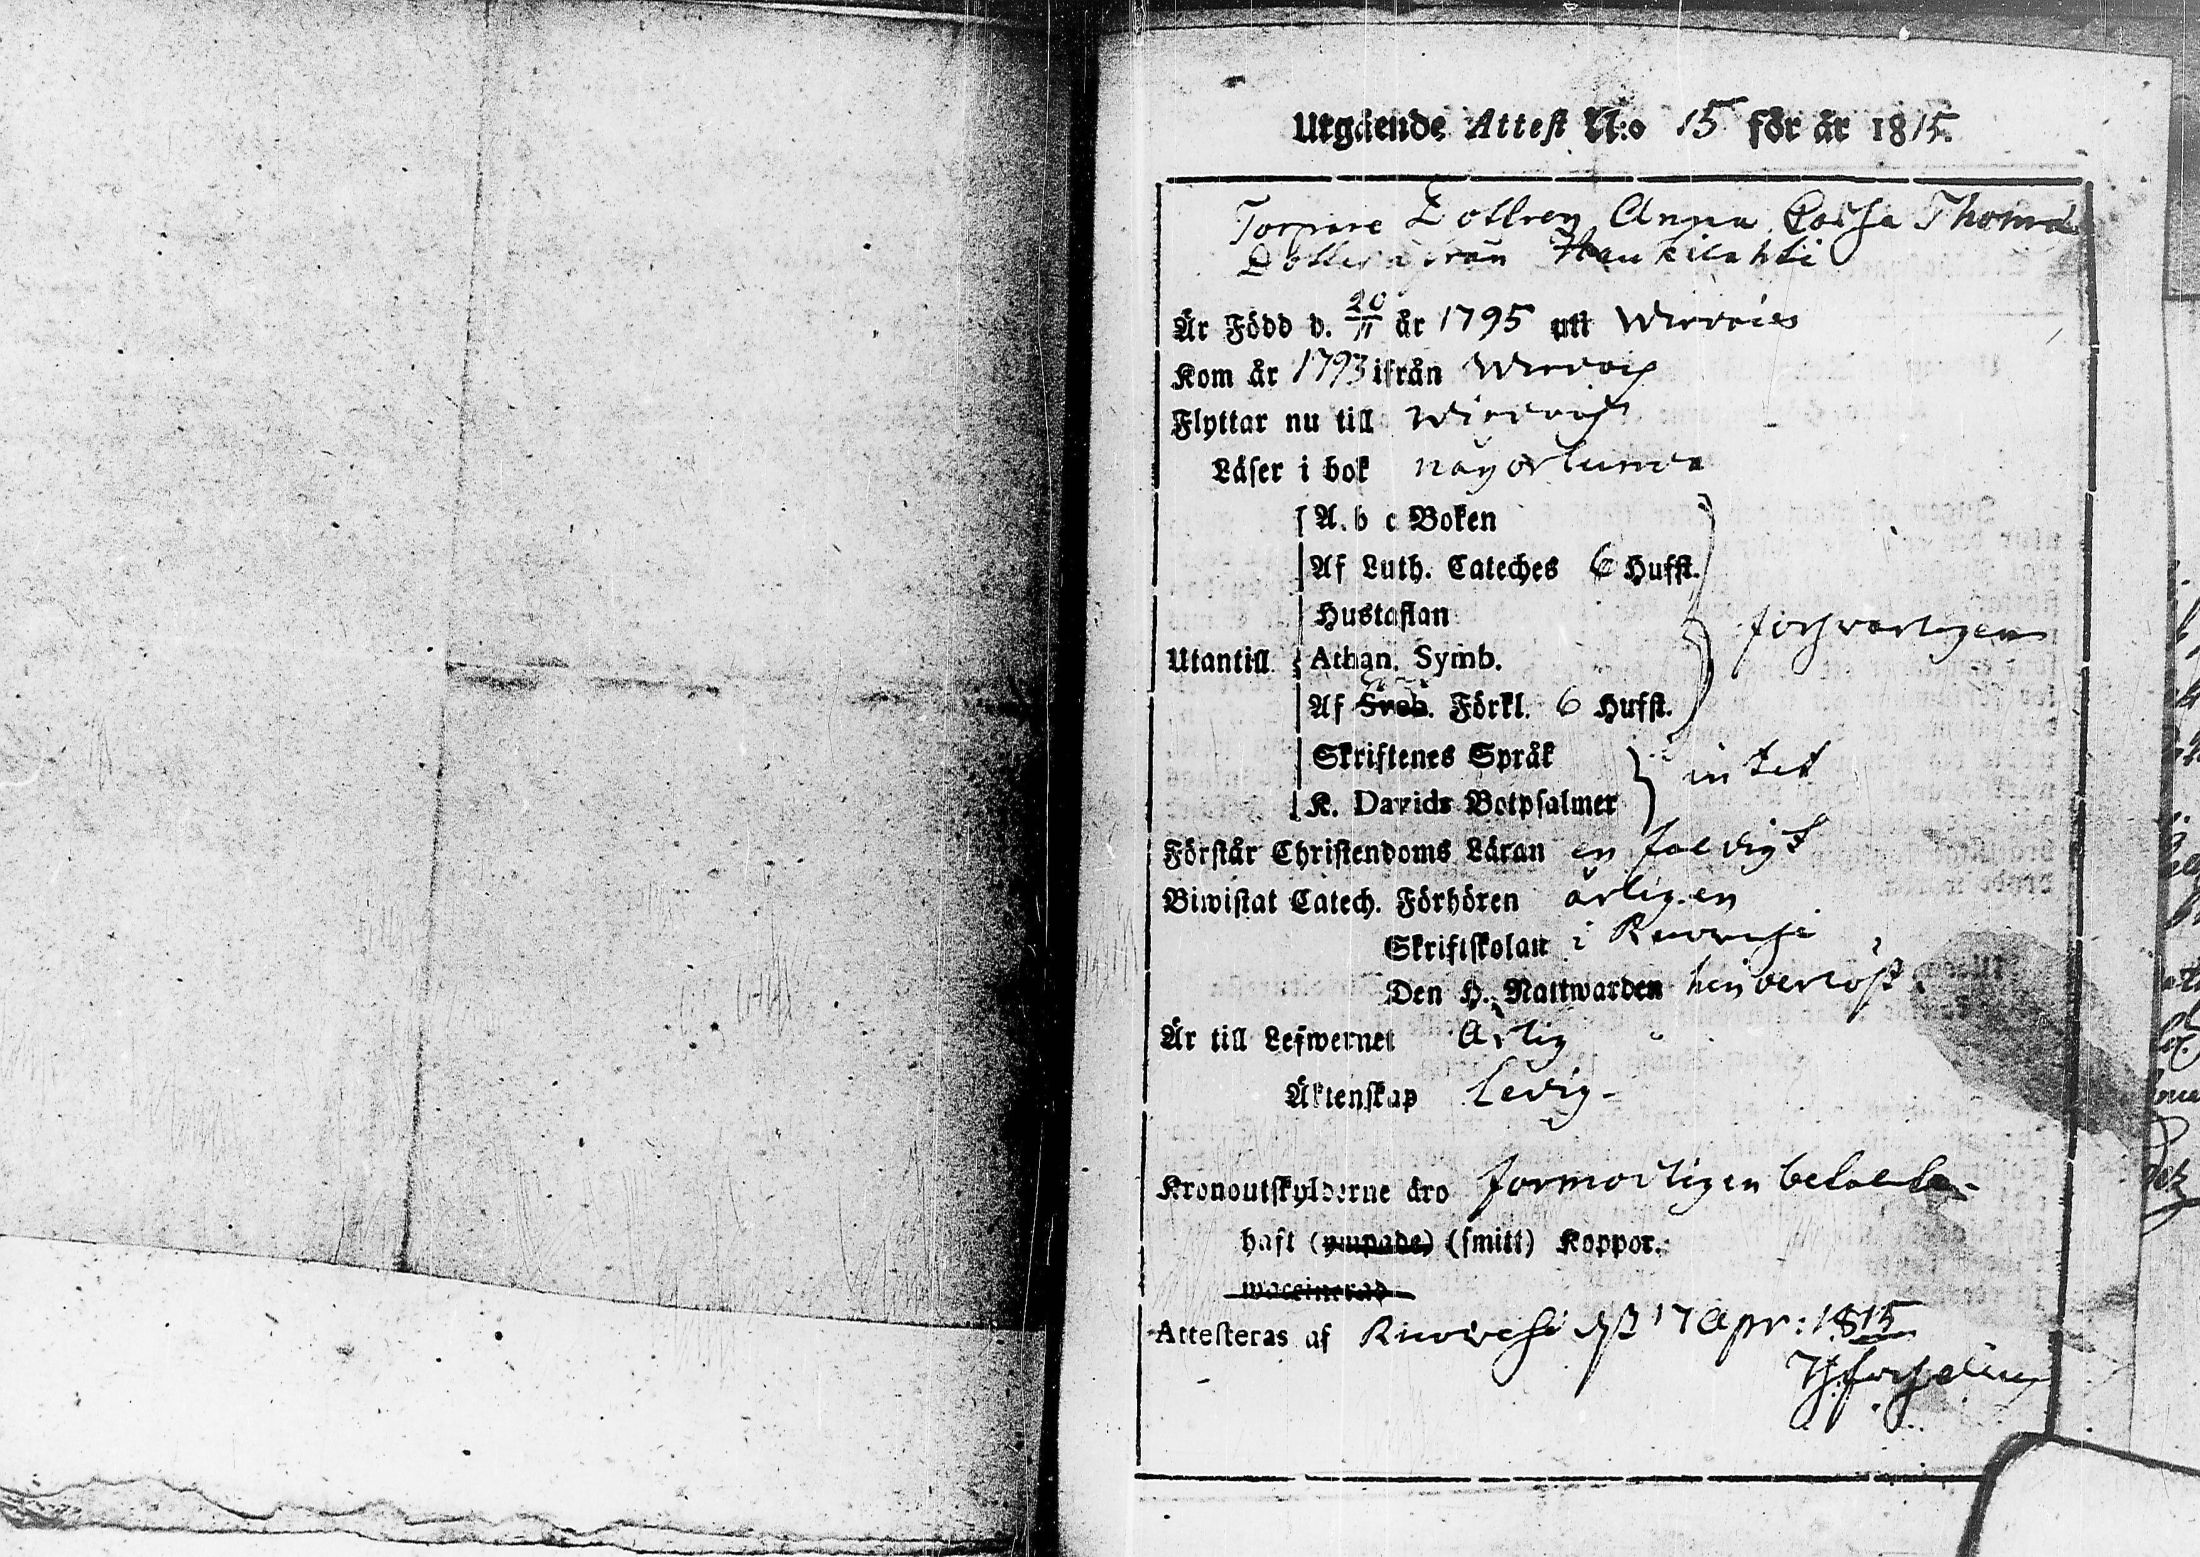 Utgående Attest N:o 15 för år 1815.
Torpare Dottren Anna Caisa Thomæ
Dotter från Haukilahti
Är Född d. 20/11 år 1795 uti Wirdois
Kom år 1793 ifrån Wirdois
Flyttar nu till Wirdois
Läser i bok någorlunda
A. b c Boken
Af Luth. Cateches 6 Hufst.
Hustaflan
Utantill Athan. Symb. försvarligen
Af Sveb. Förkl. 6 Hufst.
Skriftenes Språk
intet
K. Davids Botpsalmer
Förstår Christendoms Läran enfaldigt
Biwistat Catech. Förhören årligen
Skriftskolan i Ruovesi
Den H. Nattwarden
Är till Lefwernet Ärlig
Äktenskap Ledig -
Kronoutskylderne äro behalta
haft (ympade) (smitt) Koppor.
waccinerad
Attesteras af Ruovesi d. 17 Apr: 1815